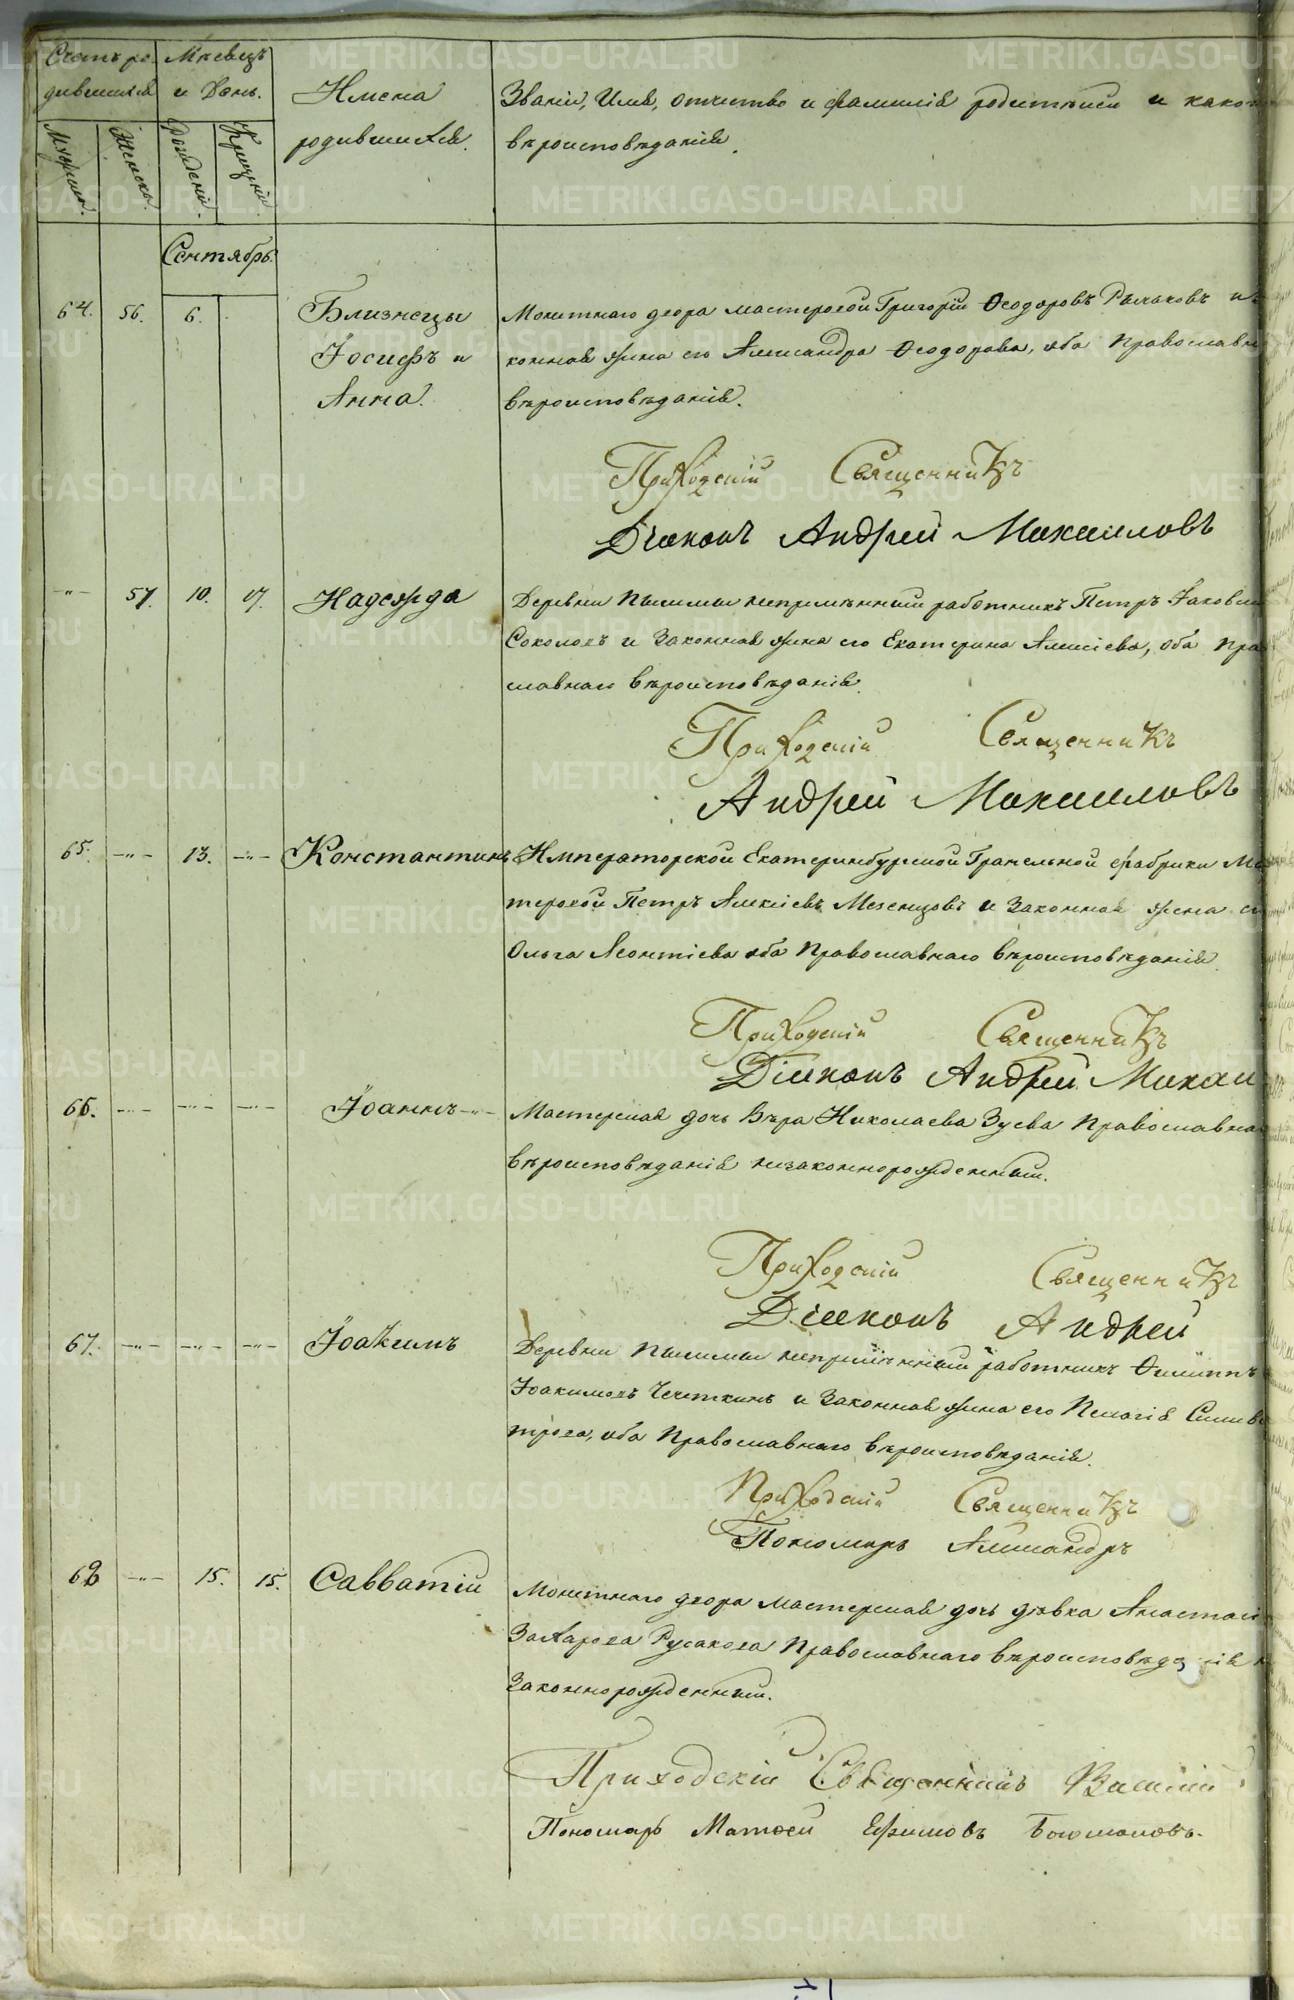 Счетъ ро-
дившихся
Мѣсяцъ
и День.
Имена
родившихся.
Званіе, Имя, отчество и фамилія родителей и какого
вѣроисповѣданія.
Мужеска.
Женска.
Рожденія.
Крещенія.
Сентябрь.
64. 56. 6.
Близнецы
Іосифъ и
Анна.
Монетнаго двора мастеровой Григорій Ѳеодоровъ Рычковъ и
конная жена его Александра Ѳеодорова, оба Православн
вѣроисповѣданія.
Приходскій Священникъ
Діаконъ Андрей Михаиловъ
-"- 57. 10. 17. Надежда
Деревни Пышмы непремѣнный работникъ Петръ Іаковлев
Соколовъ и Законная жена его Екатерина Алексіева, оба Пра
славнаго вѣроисповѣданія.
Приходскій Священникъ
Андрей Михаиловъ
65. -"- 13. -"- Константинъ
Императорской Екатеринбургской Гранильной фабрики Ма
теровой Петръ Алексіевъ Мезенцовъ и Законная жена ег
Ольга Леонтіева оба Православнаго вѣроисповѣданія.
Приходскій Священникъ
Діаконъ Андрей Михаи
66. -"- -"- -"- Іоаннъ -"-
Мастерская дочь Вѣра Николаева Зуева Православна
вѣроисповѣданія незаконнорожденный.
Приходскій Священникъ
Діаконъ Андрей
67. -"- -"- -"- Іоакимъ
Деревни Пышмы непремѣнный работникъ Филиппъ
Іоакимовъ Чечеткинъ и Законная жена его Пелагія Сильве
трова, оба Православнаго вѣроисповѣданія.
Приходскій Священникъ
Пономарь Александръ
68 -"- 15. 15. Савватій
Монетнаго двора мастерская дочь дѣвка Анастасі
Захарова Русакова Православнаго вѣроисповѣданія н
законнорожденный.
Приходскій Священникъ Василій
Пономарь Матѳей Ефимовъ Богомоловъ.
METRIKI.GASO-URAL.RU